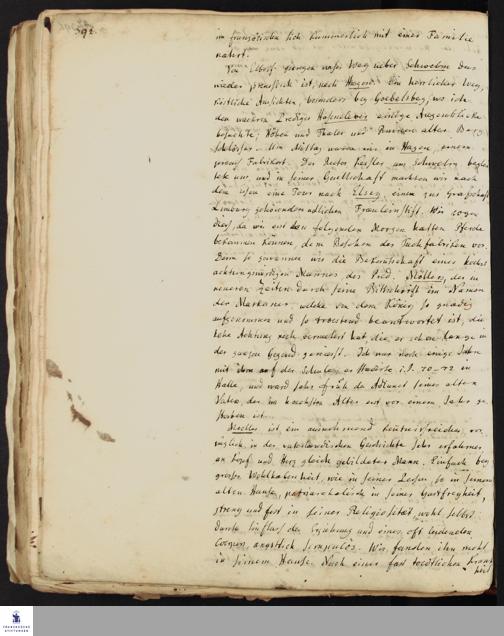 392.
in französische sich kümmerlich mit einer Familie
nährt.
Von Elberf. giengen unser Weg ueber Schwelm das
wieder preussisch ist, nach Hagen. Ein herrlicher Weg,
köstliche Aussichten, besonders bey Goebelsberg, wo ich
den wackern Prediger Hasenclever einige Augenblicke
besuchte, Höhen und Thäler und Ruinen alter
Schlösser. Um Mittag waren wir in Hagen, einem
Fabrikort. Der Rector Kessler aus Schwelm
uns, und in seiner Gesellschaft machten wir nach
dem Essen eine Tour nach Elsey, einem zur Grafschaft
Limburg gehörenden adlichen Fräuleinstift. Wir zogen
dies, da wir erst den folgenden Morgen hatten Pferde
bekommen können, dem Besehen der Tuchfabriken vor.
Denn so gewannen wir die Bekanntschaft eines höchst
achtungswürdigen Mannes des Pred. Möllers, der in
neueren Zeiten durch seine Bittschrift im Namen
der Markaner welche von dem König so gnädig
aufgenommen und so troestend beantwortet ist, die
hohe Achtung noch vermehrt hat, die er schon lange in
der ganzen Gegend geniesst. Ich war noch einige Jahre
mit ihm auf der Schule, er studirte i. J. 70-72 in
Halle, und ward sehr früh de Adjunct seines alten
Vaters, der im hoechsten Alter erst vor einem Jahr ge-
storben ist.
Moeller ist ein ausnehmend kentnissreicher, vor-
züglich in der vaterlaendischen Geschichte sehr erfahrner
an Kopf und Herz gleich gebildeter Mann. Einfach bey
grosser Wohlhabenheit, wie in seiner Zeiten so in seinem
alten Hause, patriarchalisch in seiner Gastfreyheit,
streng und fest in seiner Religiosität, wohl selbst
durch Einfluss der Erziehung und eines oft leidenden
Coerpers, ängstlich scrupulös. Wir fanden ihn nicht
in seinem Hause. Nach einer fast toedtlichen Krank-
heit
FRANCKESCHE
STIFTUNGEN